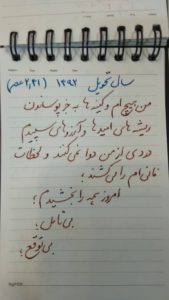 سال تحویل ۱۳۹۲ (۲,۳۱ عصر)
من هیچ ام و کینه ها به خر پوسیدن
ریشه های امیدها و آرزوهای سپیدم
دردی از من دوا نمی کنند و لحظات
نابی ام را می کشند؛
امروز همه را بخشیدم؛
بی تامل؛
بی توقع؛